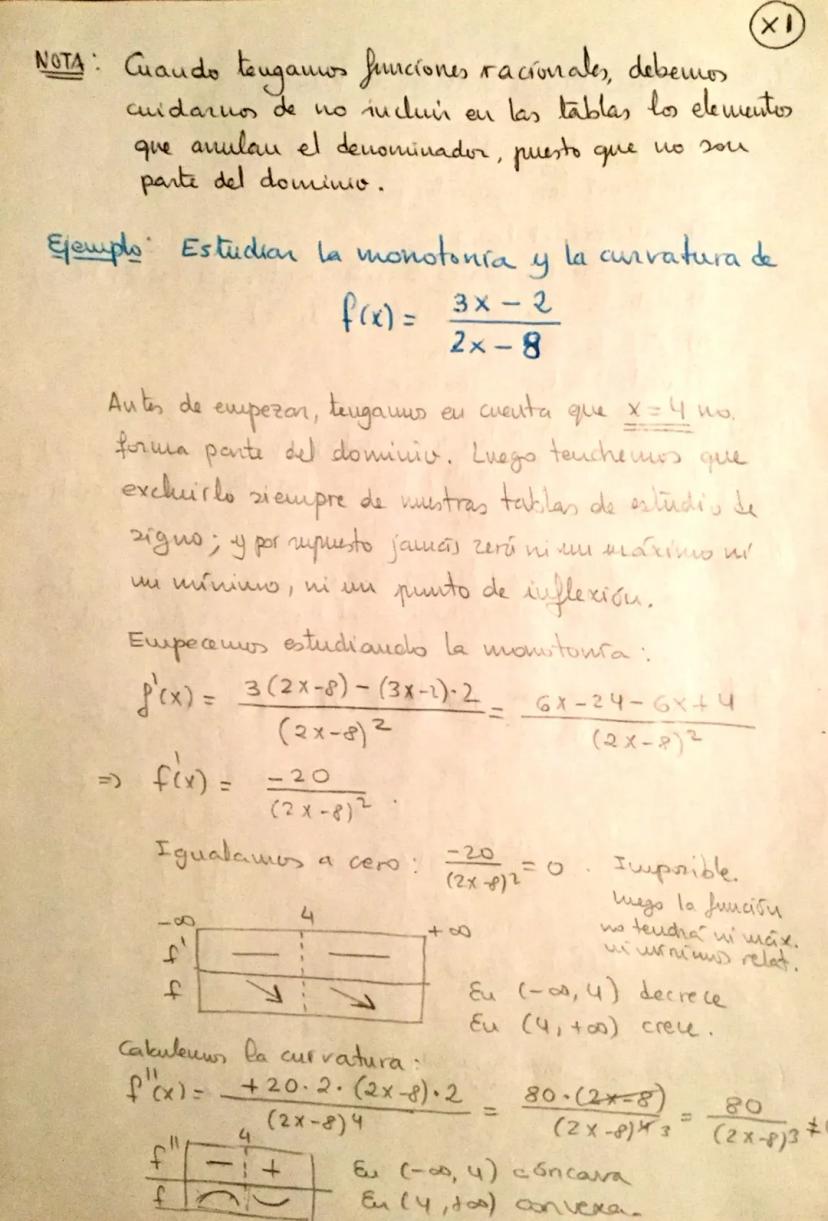 XI
NOTA: Cuando tengamos funciones racionales, debemos
cuidarnos de no incluir en las tablas los elementos
que anulan el denominador, puesto que no son
parte del dominio.
Ejemplo: Estudiar la monotonía y la curvatura de
f(x) = (3x - 2)/(2x - 8)
Antes de empezar, tengamos en cuenta que x = 4 no
forma parte del dominio. Luego tendremos que
excluirlo siempre de nuestras tablas de estudio de
signo; y por supuesto jamás será ni un máximo ni
un mínimo, ni un punto de inflexión.
Empecemos estudiando la monotonía:
f'(x) = (3(2x-8) - (3x-2)·2)/(2x-8)² = (6x - 24 - 6x + 4)/(2x-8)²
⇒ f'(x) = -20/(2x-8)².
Igualamos a cero: -20/(2x-8)² = 0. Imposible.
luego la función
no tendrá ni máx.
ni mínimos relat.
-∞ 4 +∞
f' — —
f ↘ ↘
En (-∞, 4) decrece
En (4, +∞) crece.
Calculemos la curvatura:
f''(x) = (+20·2·(2x-8)·2)/(2x-8)⁴ = 80·(2x-8)/(2x-8)⁴ ³ = 80/(2x-8)³ ≠
4
f'' - +
f ⌢ ⌣
En (-∞, 4) cóncava
En (4, +∞) convexa.